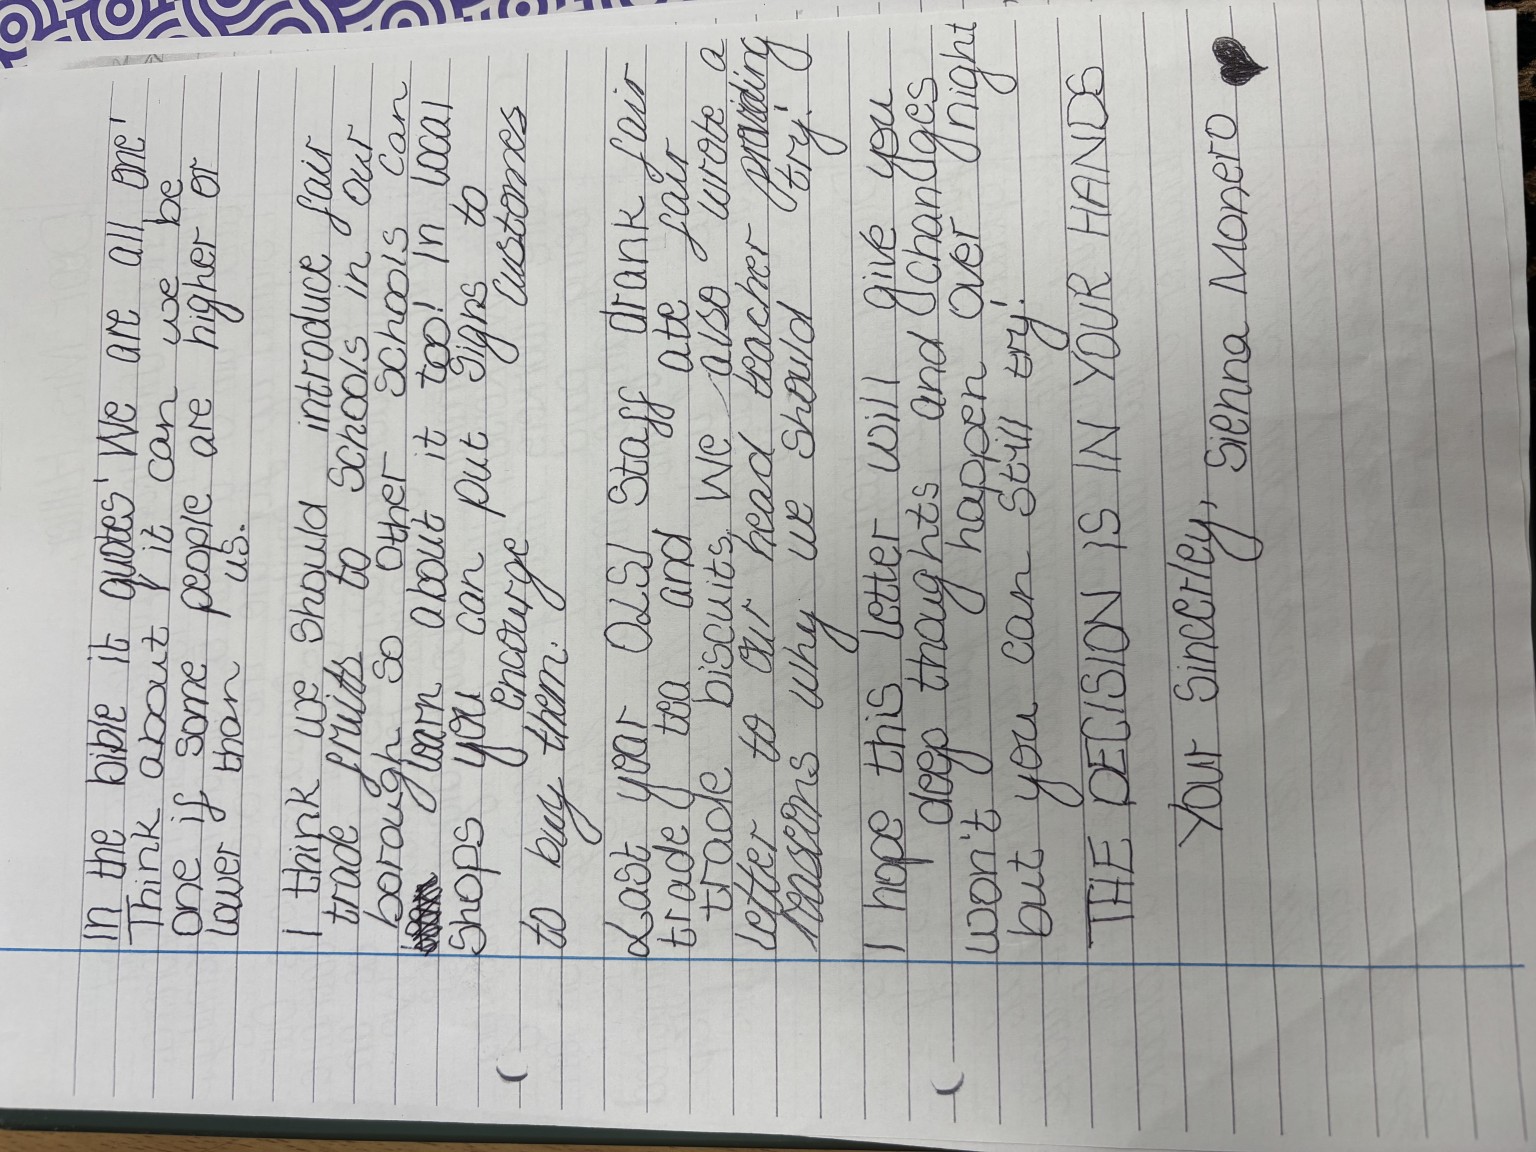 In the bible it quotes 'We are all one'
Think about it can we be
one if some people are higher or
lower than us.
I think we should introduce fair
trade fruits to schools in our
borough so other schools can
learn about it too! In local
shops you can put signs to
encourge customes
to buy them.
Last year OLSJ staff drank fair
trade tea and ate fair
trade biscuits. We also wrote a
letter to our head teacher providing
reasons why we should try!
I hope this letter will give you
deep thoughts and changes
won't happen over night
but you can still try!
THE DECISION IS IN YOUR HANDS
Your sincerley,
Sienna Monero